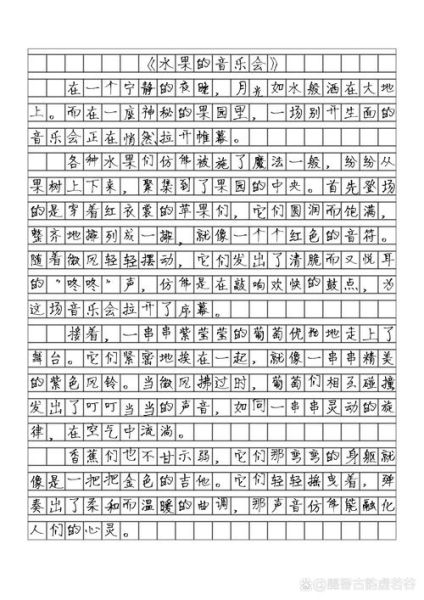 《水果的音乐会》
在一个宁静的夜晚，月光如水般洒在大地
上。而在一座神秘的果园里，一场别开生面的
音乐会正在悄然拉开帷幕。
各种水果们仿佛被施了魔法一般，纷纷从
果树上下来，聚集到了果园的中央。首先登场
的是穿着红衣裳的苹果们，它们圆润而饱满，
整齐地排列成一排，就像一个个红色的音符。
随着微风轻轻摆动，它们发出了清脆而又悦耳
的“咚咚”声，仿佛是在敲响欢快的鼓点，为
这场音乐会拉开了序幕。
接着，一串串紫莹莹的葡萄优雅地走上了
舞台。它们紧密地挨在一起，就像一串串精美
的紫色风铃。当微风拂过时，葡萄们相互碰撞
发出了叮叮当当的声音，如同一串串灵动的旋
律，在空气中流淌。
香蕉们也不甘示弱，它们那弯弯的身躯就
像是一把把金色的吉他。它们轻轻摇曳着，弹
奏出了柔和而温暖的曲调，那声音仿佛能融化
人们的心灵。
@魔兽古韵虚若谷